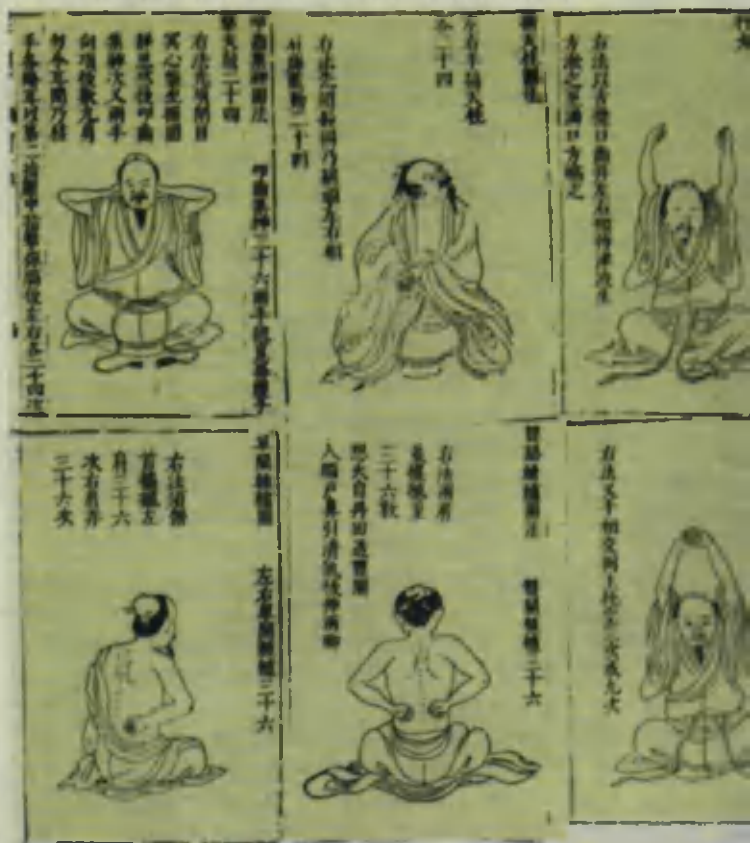 右法以舌攪口齒并左右頰待津液生
方漱之至滿口方嚥之
搖天柱圖法
左右手搖天柱
各二十四
右法先須握固乃搖頭左右顧
肩膊隨動二十四
叩齒集神圖法
叩齒集神三十六兩手抱崑崙雙手
擊天鼓二十四
右法先須閉目
冥心盤坐握固
靜思然後叩齒
集神次又兩手
向項後數九息
勿令耳聞乃移
手各掩耳以第二指壓中指擊彈腦後左右各二十四次
右法叉手相交向上托空三次或九次
雙關轆轤圖法
雙關轆轤三十六
右法兩肩
並擺撼至
三十六數
想火自丹田透雙關
入腦戶鼻引清氣後伸兩腳
單關轆轤圖
左右單關轆轤三十六
右法須俯
首擺撼左
肩三十六
次右肩亦
三十六次